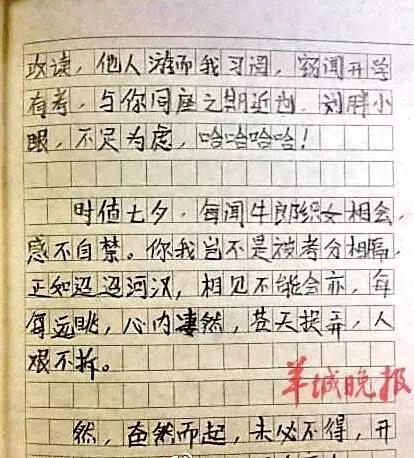 攻读，他人游而我习，窃闻开学
有考，与你同座之期近也．刘胖小
眼，不足为虑，哈哈哈哈！
时值七夕，每闻牛郎织女相会，
感不自禁。你我岂不是被考分相隔，
正如迢迢河汉，相见不能会亦，每
每远眺，心内凄然，苍天捉弄，人
艰不拆。
羊城晚报
然，奋然而起，未必不得，开